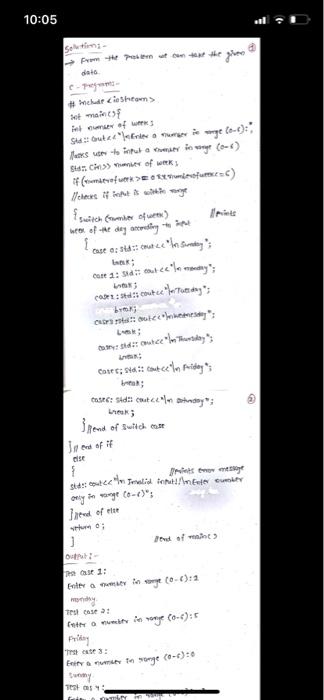 10:05
Solution:-
→ From the Problem we can take the given
data.
C-Program:-
# include <iostream>
int main(){
int number of week;
std::cout<<"\nEnter a number in range (0-6):";
//asks user to intput a number in range (0-6)
std:: cin>> number of week;
if(numberofweek>=0&&numberofweek<=6)
//checks if intput is within range
{switch (number of week) //Prints
week of the day according to input
{ case 0: std::cout<<"\n Sunday";
break;
case 1: std:: cout<<"\n monday";
break;
case 2: std:: cout<<"\n Tuesday";
break;
case 3: std:: cout<<"\n wednesday";
break;
case 4: std:: cout<<"\n Thursday";
break;
case 5: std:: cout<<"\n Friday";
break;
case 6: std:: cout<<"\n Saturday";
break;
}//end of switch case
}// end of if
else
{ //Prints error message
std:: cout<<"\n Invalid input!/\nEnter number
only in range (0-6)";
}//end of else
return 0;
} //end of main()
output:-
Test case 1:
Enter a number in range (0-6):1
monday.
Test case 2:
Enter a number in range (0-6):5
Friday
Test case 3:
Enter a number in range (0-6):0
Sunday.
Test cas 4: